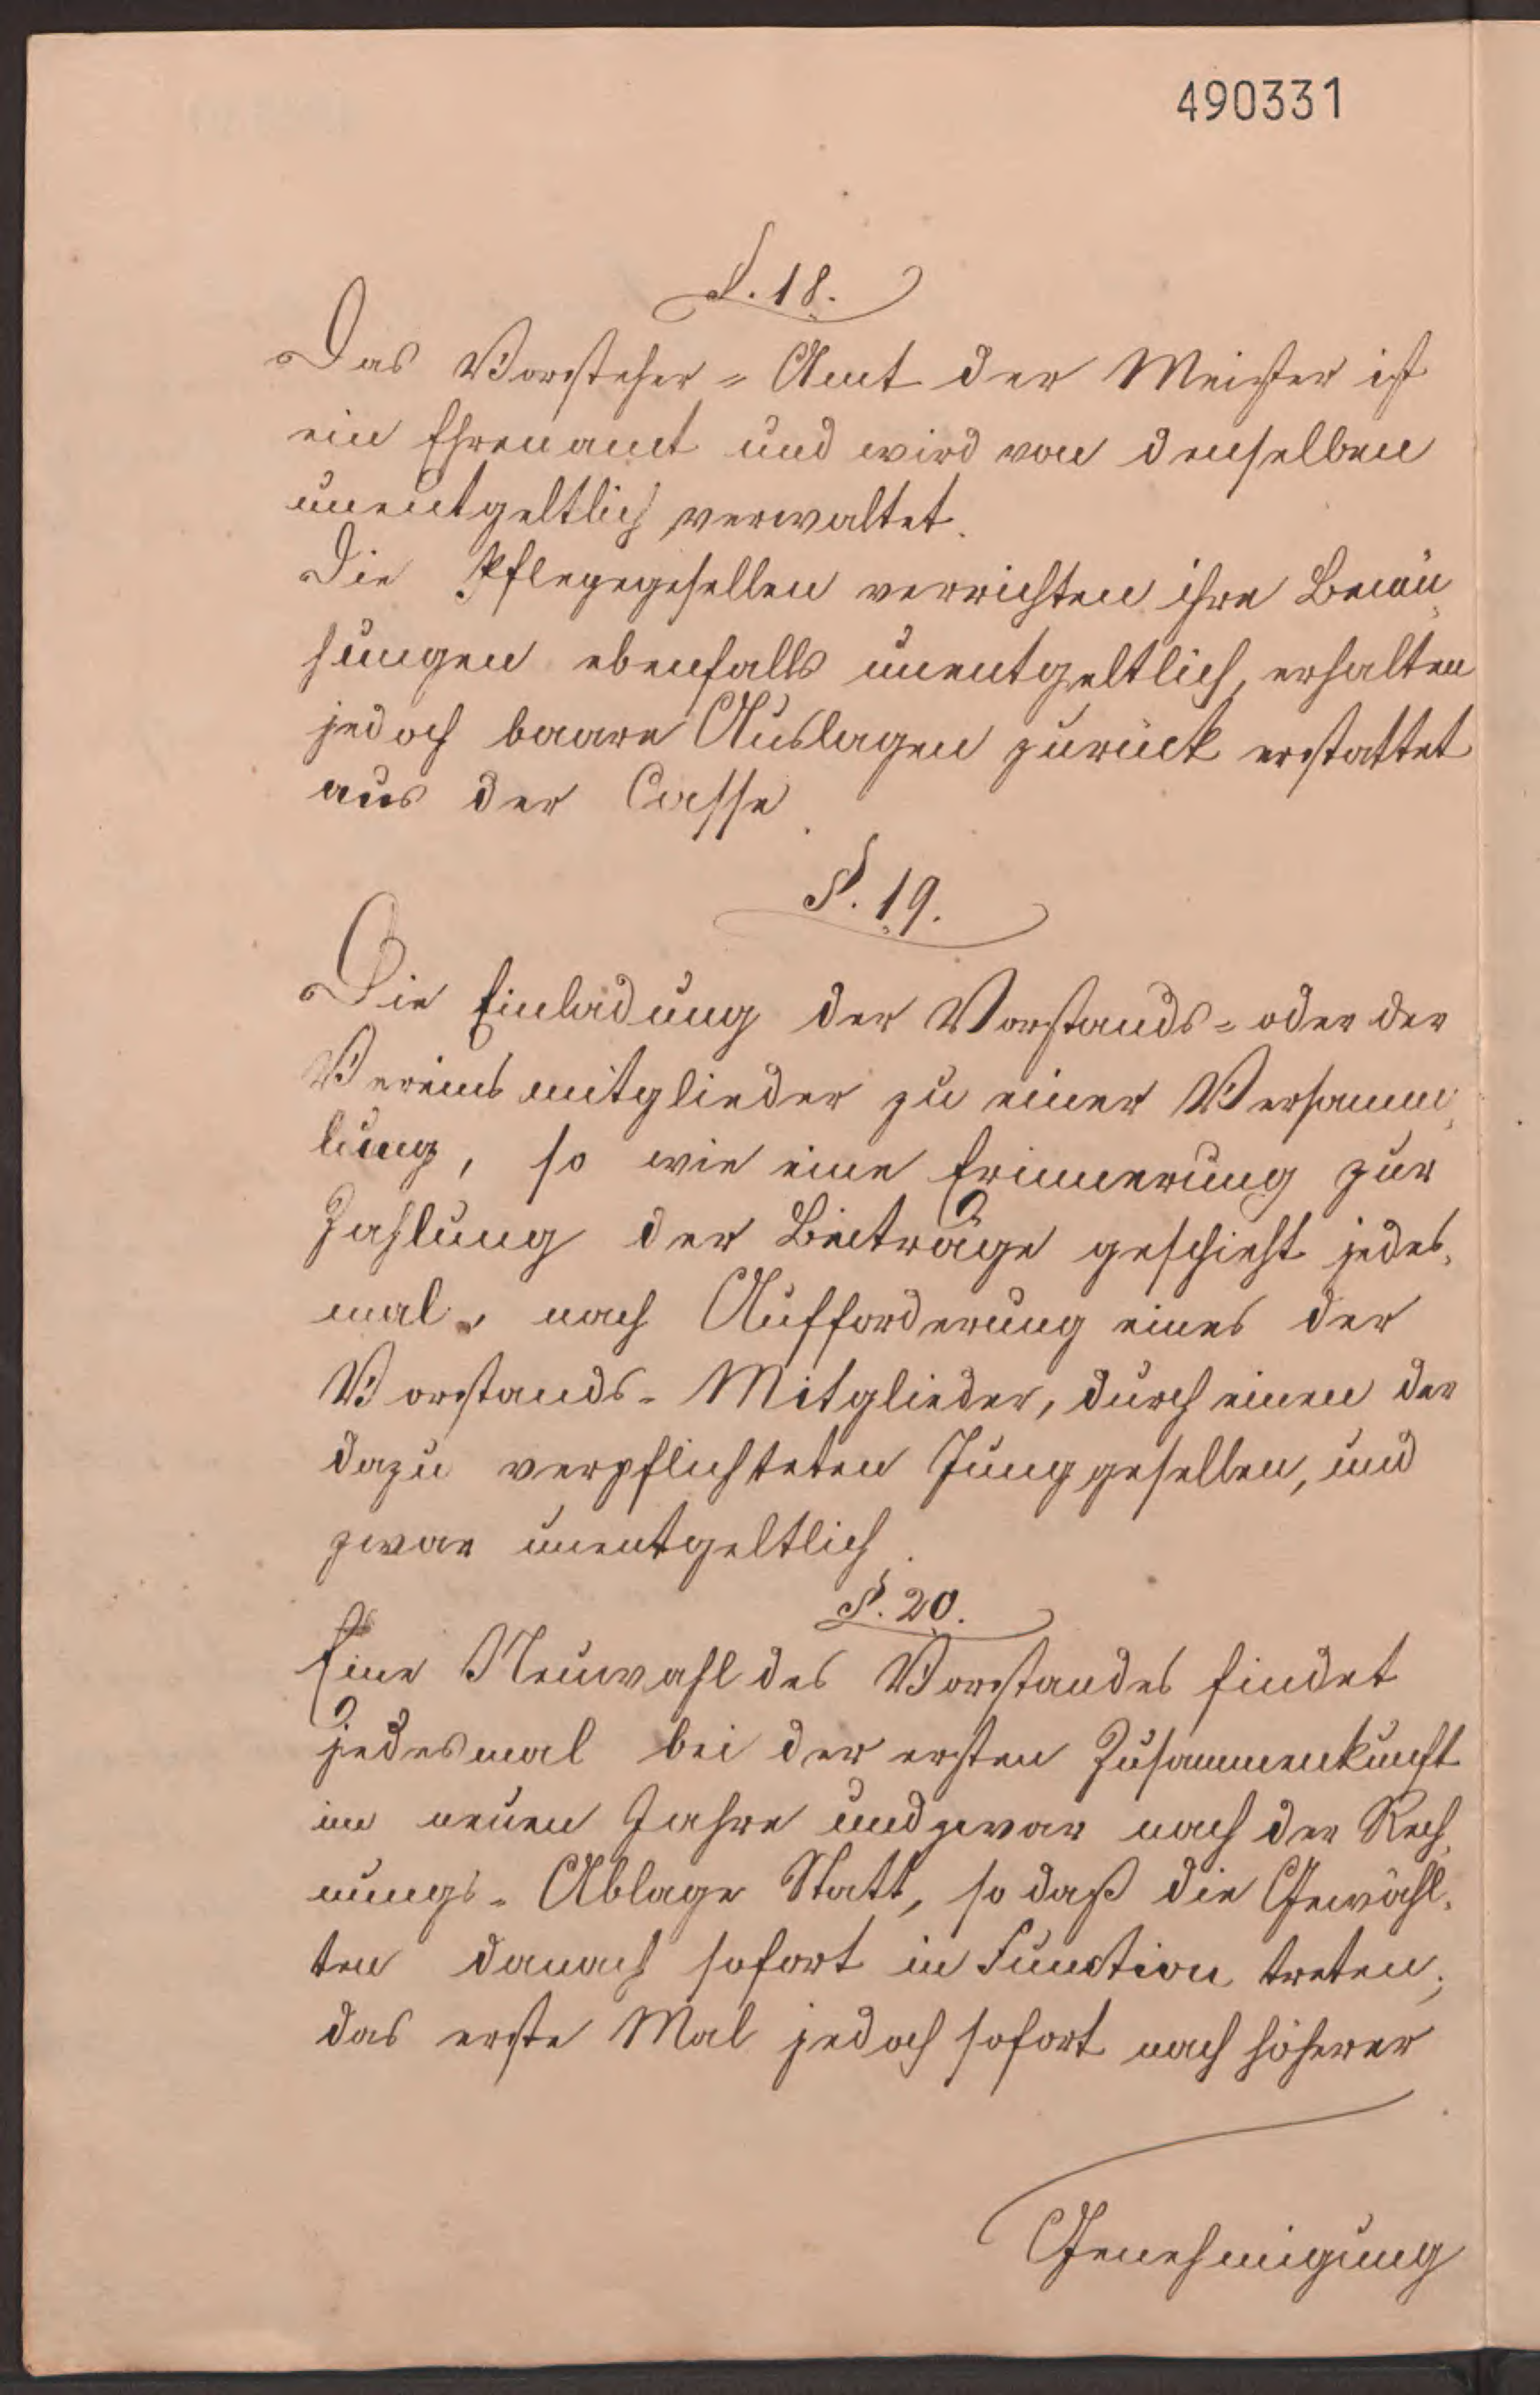 490331
§. 18.
Das Vorsteher-Amt der Meister ist
ein Ehrenamt und wird von denselben
unentgeltlich verwaltet.
Die Pflegegesellen verrichten ihre Bemü-
hungen ebenfalls unentgeltlich, erhalten
jedoch baare Auslagen zurück erstattet
aus der Casse.
§. 19.
Die Einladung der Vorstands- oder der
Vereinsmitglieder zu einer Versamm-
lung, so wie eine Erinnerung zur
Zahlung der Beiträge geschieht jedes-
mal, nach Aufforderung eines der
Vorstands-Mitglieder, durch einen der
dazu verpflichteten Junggesellen, und
zwar unentgeltlich.
§. 20.
Eine Neuwahl des Vorstandes findet
jedesmal bei der ersten Zusammenkunft
im neuen Jahre und zwar nach der Rech-
nungs-Ablage Statt, so daß die Gewähl-
ten danach sofort in Function treten;
das erste Mal jedoch sofort nach höherer
Genehmigung